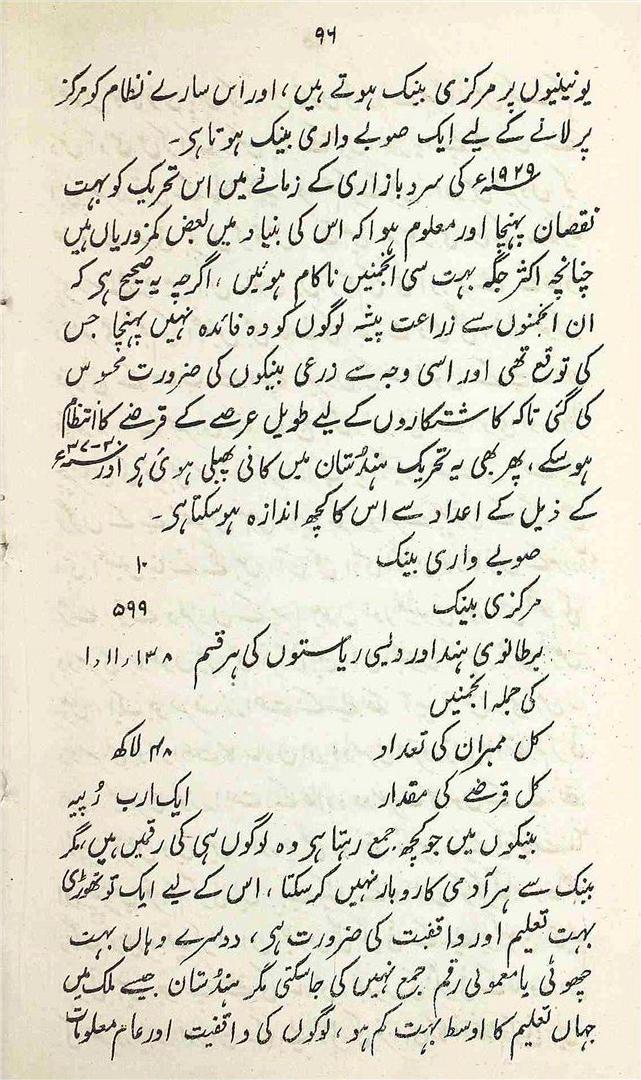 ۹۶
یونینیوں پر مرکزی بینک ہوتے ہیں، اور اس سارے نظام کو مرکز
پر لانے کے لیے ایک صوبے واری بینک ہوتا ہی۔
۱۹۲۹ء کی سرد بازاری کے زمانے میں اس تحریک کو بہت
نقصان پہنچا اور معلوم ہوا کہ اس کی بنیاد میں بعض کمزوریاں ہیں
چنانچہ اکثر جگہ بہت سی انجمنیں ناکام ہوئیں، اگرچہ یہ صحیح ہی کہ
ان انجمنوں سے زراعت پیشہ لوگوں کو وہ فائدہ نہیں پہنچا جس
کی توقع تھی اور اسی وجہ سے زرعی بینکوں کی ضرورت محسوس
کی گئی تاکہ کاشتکاروں کے لیے طویل عرصے کے قرضے کا انتظام
ہو سکے، پھر بھی یہ تحریک ہندُستان میں کافی پھیلی ہوئ ہی اور
کے ذیل کے اعداد سے اس کا کچھ اندازہ ہو سکتا ہی۔
صوبے واری بینک ۱۰
مرکزی بینک ۵۹۹
برطانوی ہند اور دیسی ریاستوں کی ہر قسم ۱،۱۱،۱۳۸
کی جملہ انجمنیں
کل ممبران کی تعداد ۴۸ لاکھ
کل قرضے کی مقدار ایک ارب رُپیہ
بینکوں میں جو کچھ جمع رہتا ہی وہ لوگوں ہی کی رقمیں ہیں، مگر
بینک سے ہر آدمی کاروبار نہیں کر سکتا، اس کے لیے ایک تو تھوڑی
بہت تعلیم اور واقفیت کی ضرورت ہی، دوسرے وہاں بہت
چھوٹی یا معمولی رقم جمع نہیں کی جا سکتی مگر ہندُستان جیسے ملک میں
جہاں تعلیم کا اوسط بہت کم ہو، لوگوں کی واقفیت اور عام معلومات